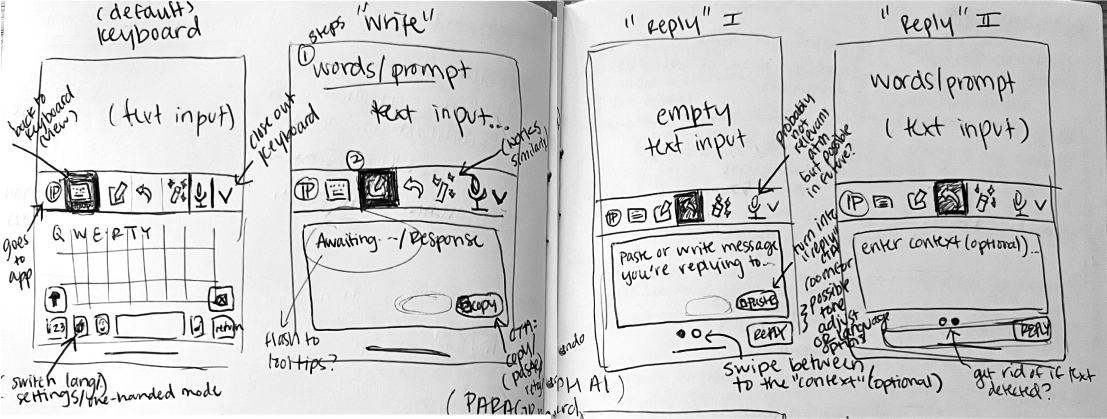 (default)
keyboard
back to
keyboard
(view?)
(text input)
close out
keyboard
IP
goes
to
app
Q W E R T Y
123
return
switch lang/
settings/one-handed mode
steps "Write"
1
words/prompt
text input...
(works
similarly
2
IP
Awaiting.../Response
copy
flash to
tooltips?
CTA:
copy
(paste
"Reply" I
empty
text input
probably
not
relevant
atm
but possible
in future?
IP
Paste or write message
you're replying to...
PASTE
REPLY
turn into
"reply"
room for
possible
tone
adjust
or language
options
swipe between
to the "context" (optional)
undo
PH AI)
(PARAGR
"Reply" II
words/prompt
(text input)
IP
enter context (optional)...
REPLY
get rid of if text
detected?